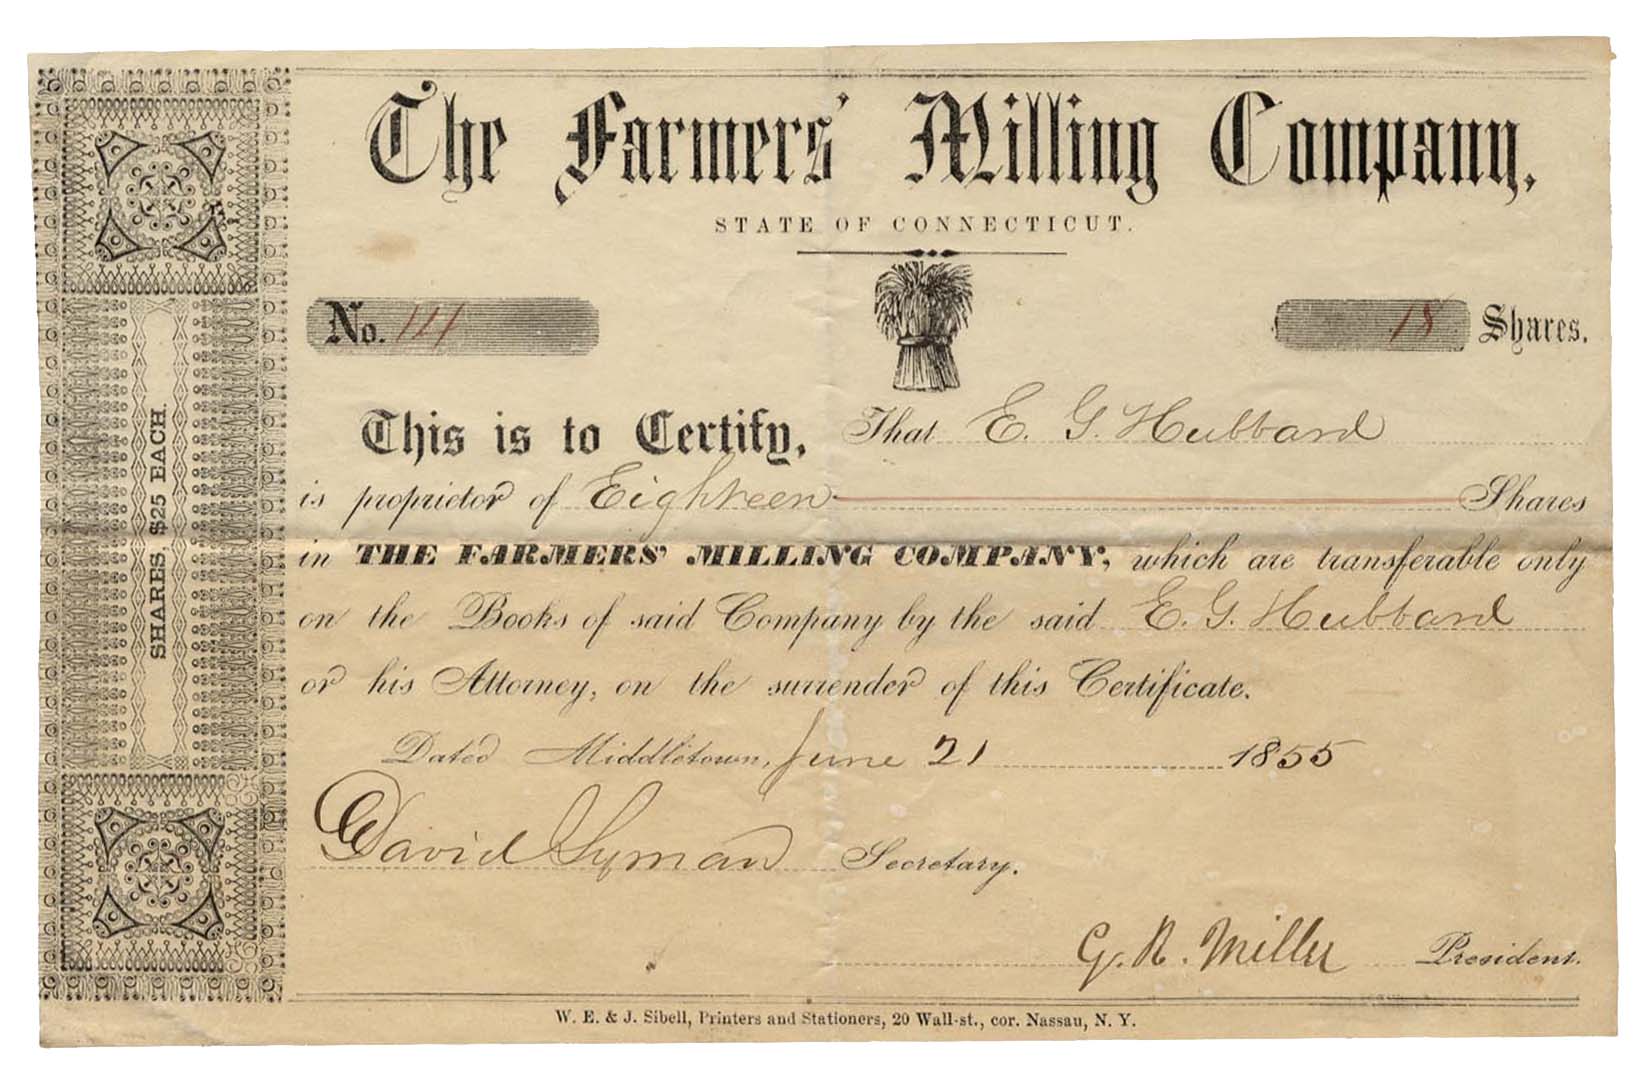 The Farmers' Milling Company,
STATE OF CONNECTICUT.
No. 18 Shares.
This is to Certify, That E. G. Hubbard
is proprietor of Eighteen Shares
in THE FARMERS' MILLING COMPANY, which are transferable only
on the Books of said Company by the said E. G. Hubbard
or his Attorney, on the surrender of this Certificate.
Dated Middletown, June 21 1855
David Lyman Secretary.
G. R. Miller President.
W. E. & J. Sibell, Printers and Stationers, 20 Wall-st., cor. Nassau, N. Y.
SHARES, $25 EACH.